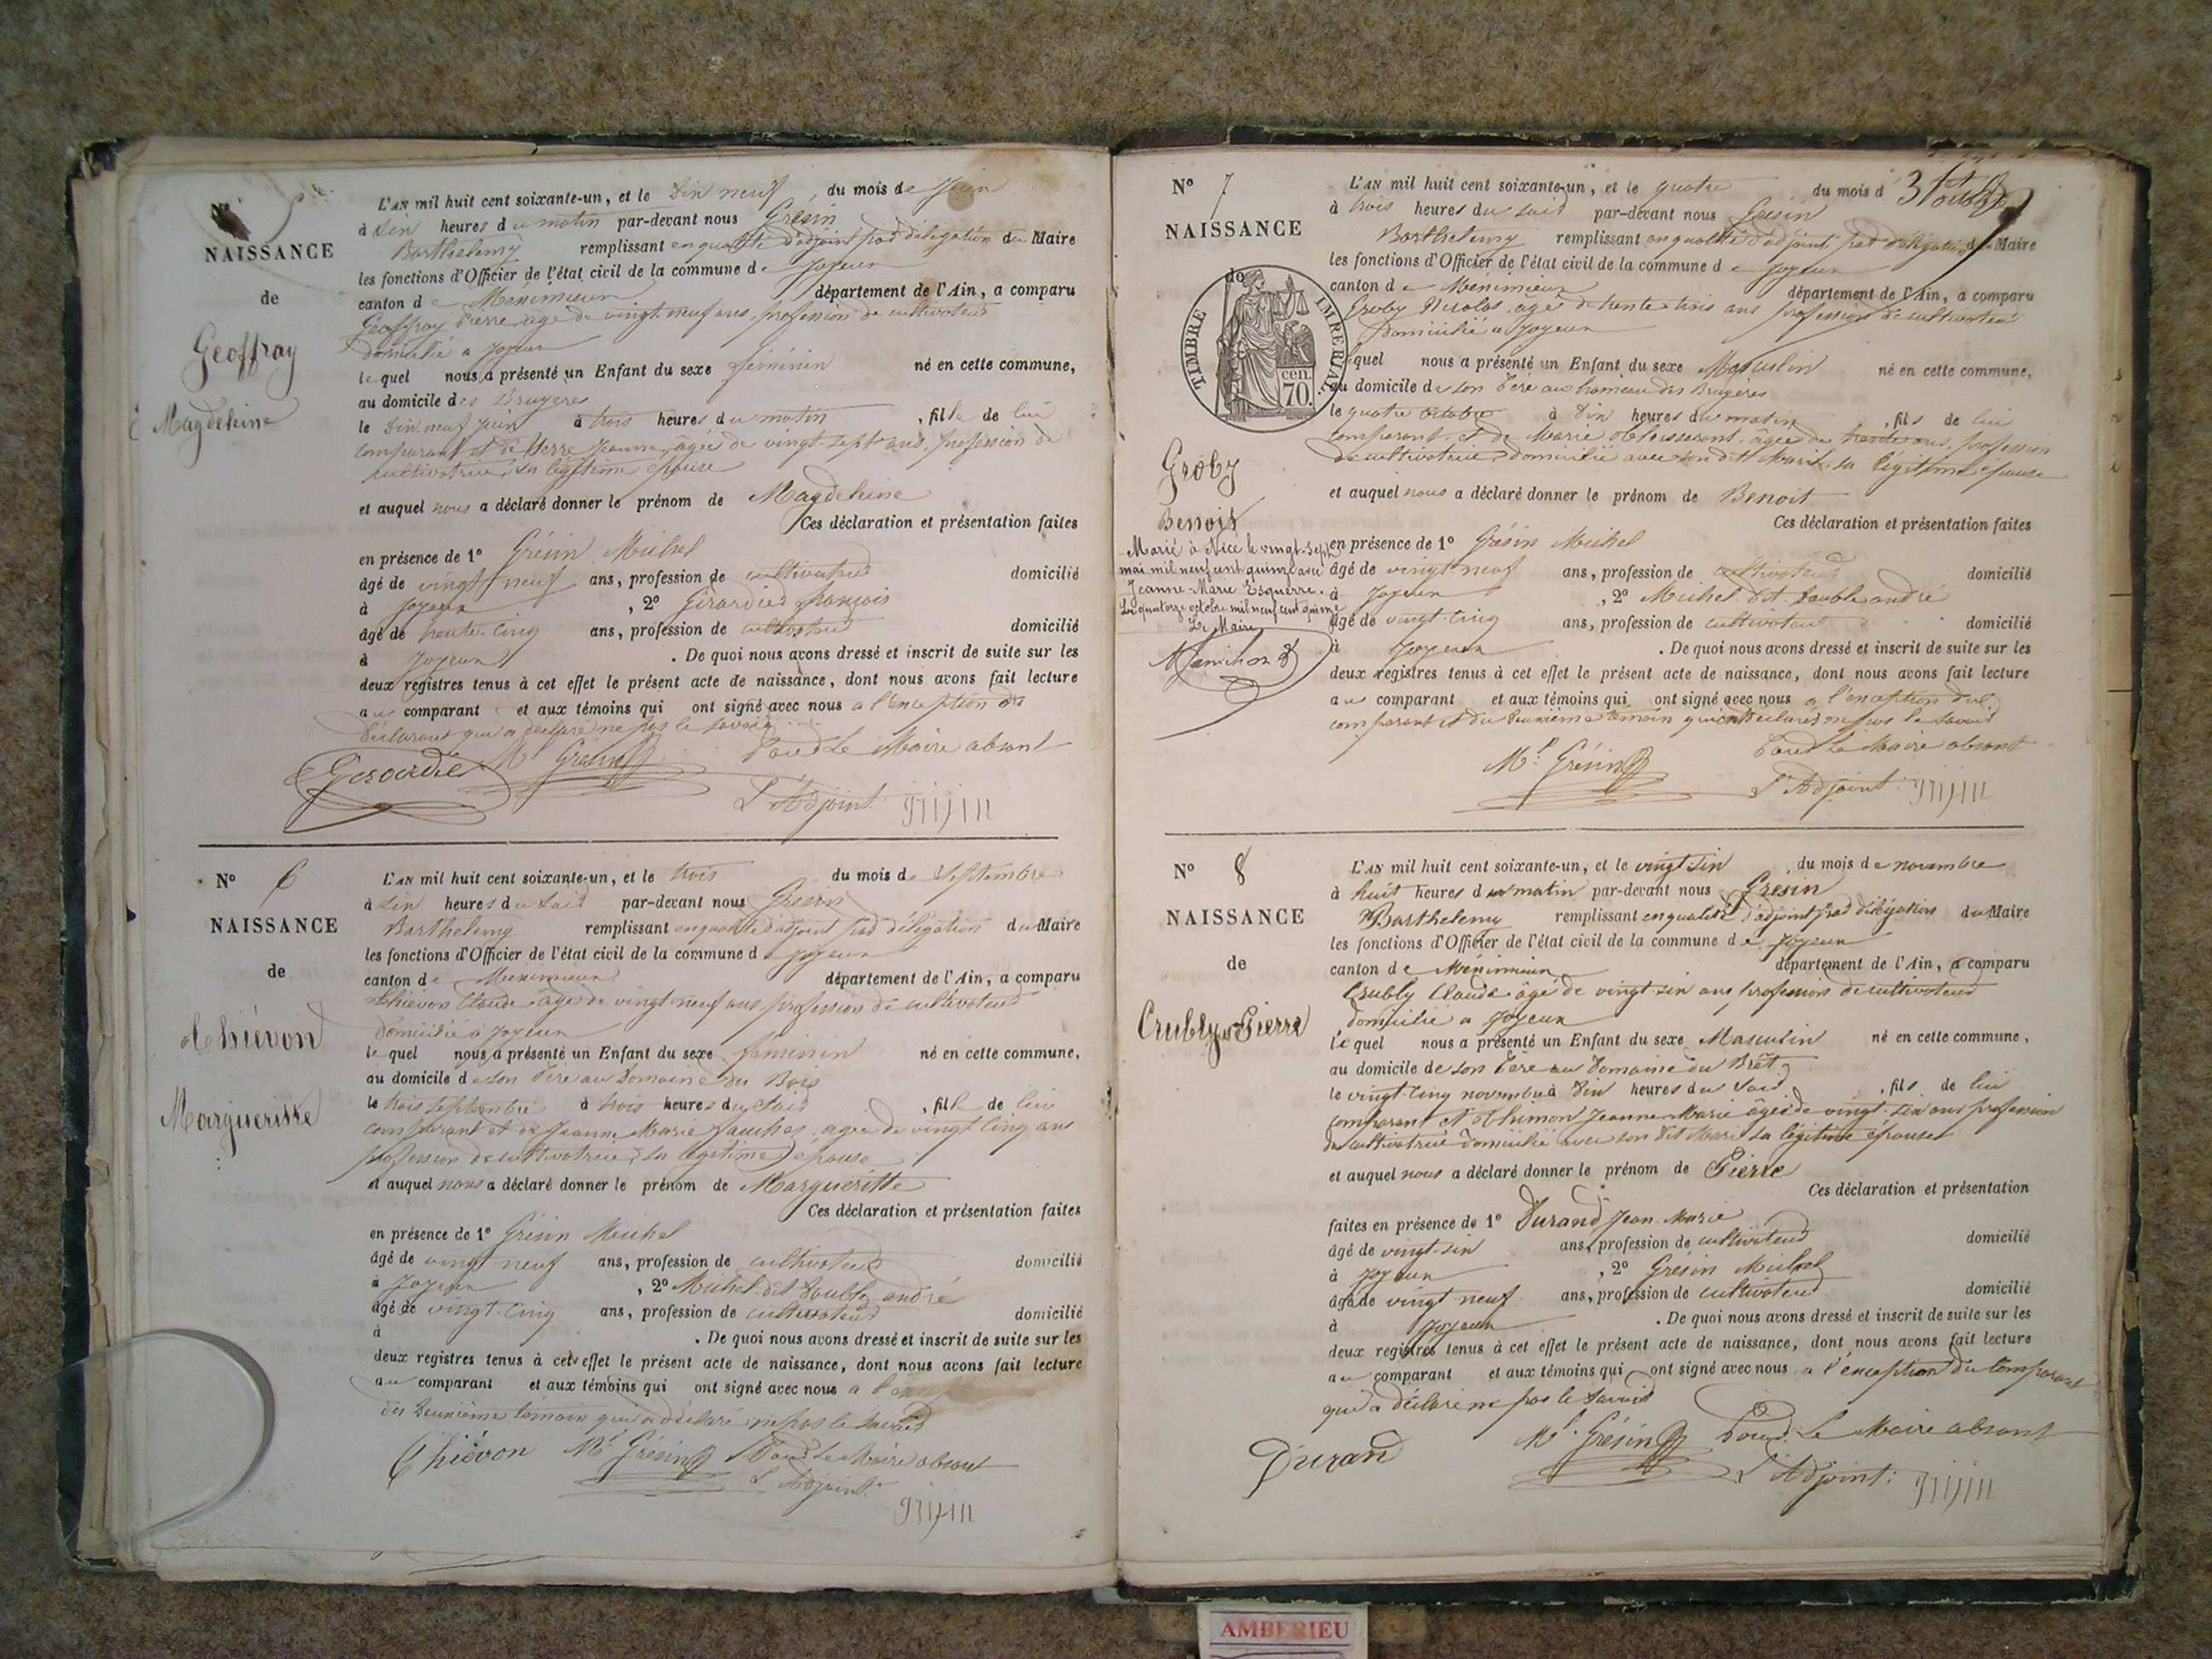 N° 5
NAISSANCE
de
Geoffray
Magdeleine
L'AN mil huit cent soixante-un, et le Dix neuf du mois de Juin
à dix heures du matin par-devant nous Grésin
Barthelemy remplissant en qualité d'adjoint par délégation du Maire
les fonctions d'Officier de l'état civil de la commune de Joyeux
canton de Méximieux département de l'Ain, a comparu
Geoffray Pierre âgé de vingt-neuf ans, profession de cultivateur
domicilié a Joyeux
lequel nous a présenté un Enfant du sexe féminin né en cette commune,
au domicile des Bruyeres
le Dix neuf Juin à trois heures du matin, fille de lui
comparant et de Serre Jeanne, âgée de vingt-sept ans, profession de
cultivatrice, sa légitime épouse
et auquel nous a déclaré donner le prénom de Magdeleine
Ces déclaration et présentation faites
en présence de 1° Grésin Michel
âgé de vingt neuf ans, profession de cultivateur domicilié
à Joyeux, 2° Girardier françois
âgé de trente-cinq ans, profession de cultivateur domicilié
à Joyeux. De quoi nous avons dressé et inscrit de suite sur les
deux registres tenus à cet effet le présent acte de naissance, dont nous avons fait lecture
au comparant et aux témoins qui ont signé avec nous a l'exception du
déclarant qui a déclaré ne pas le savoir
Girardier Ml Grésin Pour Le Maire absent
L'Adjoint: grisin
N° 6
NAISSANCE
de
Chiévon
Margueritte
L'AN mil huit cent soixante-un, et le trois du mois de Septembre
à dix heures du soir par-devant nous Grésin
Barthelemy remplissant en qualité d'adjoint par délégation du Maire
les fonctions d'Officier de l'état civil de la commune de Joyeux
canton de Meximieux département de l'Ain, a comparu
Chiévon Claude âgé de vingt-neuf ans profession de cultivateur
domicilié a Joyeux
lequel nous a présenté un Enfant du sexe féminin né en cette commune,
au domicile de son Père au Domaine du Bois
le trois septembre à trois heures du soir, fille de lui
comparant et de Jeanne Marie âgée de vingt cinq ans
profession de cultivatrice, sa légitime épouse
et auquel nous a déclaré donner le prénom de Margueritte
Ces déclaration et présentation faites
en présence de 1° Grésin Michel
âgé de vingt neuf ans, profession de cultivateur domicilié
à Joyeux, 2° Michel dit Double andré
âgé de vingt-cinq ans, profession de cultivateur domicilié
à. De quoi nous avons dressé et inscrit de suite sur les
deux registres tenus à cet effet le présent acte de naissance, dont nous avons fait lecture
au comparant et aux témoins qui ont signé avec nous a
du Deuxième témoin qui a déclaré ne pas le savoir
Chiévon Ml Grésin Pour Le Maire absent
L'Adjoint: grisin
N° 7
NAISSANCE
de
TIMBRE IMPERIAL.
70. cen
Groby
Benoit
Marié à Nice le vingt-sept
mai mil neuf cent quinze avec
Jeanne-Marie Esquerré.
Le quatorze octobre mil neuf cent quinze
Le Maire
L'AN mil huit cent soixante-un, et le quatre du mois d'8bre
à trois heures du soir par-devant nous Grésin
Barthelemy remplissant en qualité d'adjoint par délégation du Maire
les fonctions d'Officier de l'état civil de la commune de Joyeux
canton de Méximieux département de l'Ain, a comparu
Groby Nicolas âgé de trente trois ans profession de cultivateur
domicilié a Joyeux
lequel nous a présenté un Enfant du sexe Masculin né en cette commune,
au domicile de son Père au hameau des Bruyères
le quatre octobre à dix heures du matin, fils de lui
comparant, et de Marie âgée de trente ans, profession
de cultivatrice, domiciliée avec son dit Mari, sa légitime épouse
et auquel nous a déclaré donner le prénom de Benoit
Ces déclaration et présentation faites
en présence de 1° Grésin Michel
âgé de vingt neuf ans, profession de cultivateur domicilié
à Joyeux, 2° Michel dit Double andré
âgé de vingt-cinq ans, profession de cultivateur domicilié
à Joyeux. De quoi nous avons dressé et inscrit de suite sur les
deux registres tenus à cet effet le présent acte de naissance, dont nous avons fait lecture
au comparant et aux témoins qui ont signé avec nous a l'exception du
comparant et du Deuxième témoin qui ont déclarés ne pas le savoir
Ml Grésin Pour Le Maire absent
L'Adjoint: grisin
N° 8
NAISSANCE
de
Crubly Pierre
L'AN mil huit cent soixante-un, et le vingt-six du mois de novembre
à huit heures du matin par-devant nous Grésin
Barthelemy remplissant en qualité d'adjoint par délégation du Maire
les fonctions d'Officier de l'état civil de la commune de Joyeux
canton de Méximieux département de l'Ain, a comparu
Crubly Claude âgé de vingt-six ans profession de cultivateur
domicilié a Joyeux
lequel nous a présenté un Enfant du sexe Masculin né en cette commune,
au domicile de son Père au Domaine du Brêt
le vingt-cinq novembre à dix heures du soir, fils de lui
comparant et Jeanne Marie âgée de vingt-six ans profession
de cultivatrice domiciliée avec son dit Mari sa légitime épouse
et auquel nous a déclaré donner le prénom de Pierre
Ces déclaration et présentation
faites en présence de 1° Durand Jean-Marie
âgé de vingt-six ans, profession de cultivateur domicilié
à Joyeux, 2° Grésin Michel
âgé de vingt neuf ans, profession de cultivateur domicilié
à Joyeux. De quoi nous avons dressé et inscrit de suite sur les
deux registres tenus à cet effet le présent acte de naissance, dont nous avons fait lecture
au comparant et aux témoins qui ont signé avec nous a l'exception du comparant
qui a déclaré ne pas le savoir
Duran Ml Grésin Pour Le Maire absent
L'Adjoint: grisin
AMBERIEU